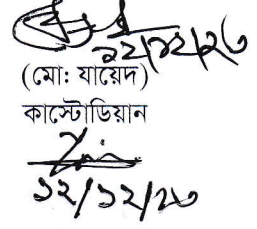 ১২/১২/২৩
(মো: যায়েদ)
কাস্টোডিয়ান
১২/১২/২৩